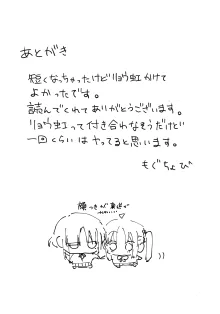 あとがき
短くなっちゃったけどリョウ虹かけて
よかったです。
読んでくれてありがとうございます。
リョウ虹って付き合わなそうだけど
一回くらいはヤってると思います。
もぐちょび
顔つきが